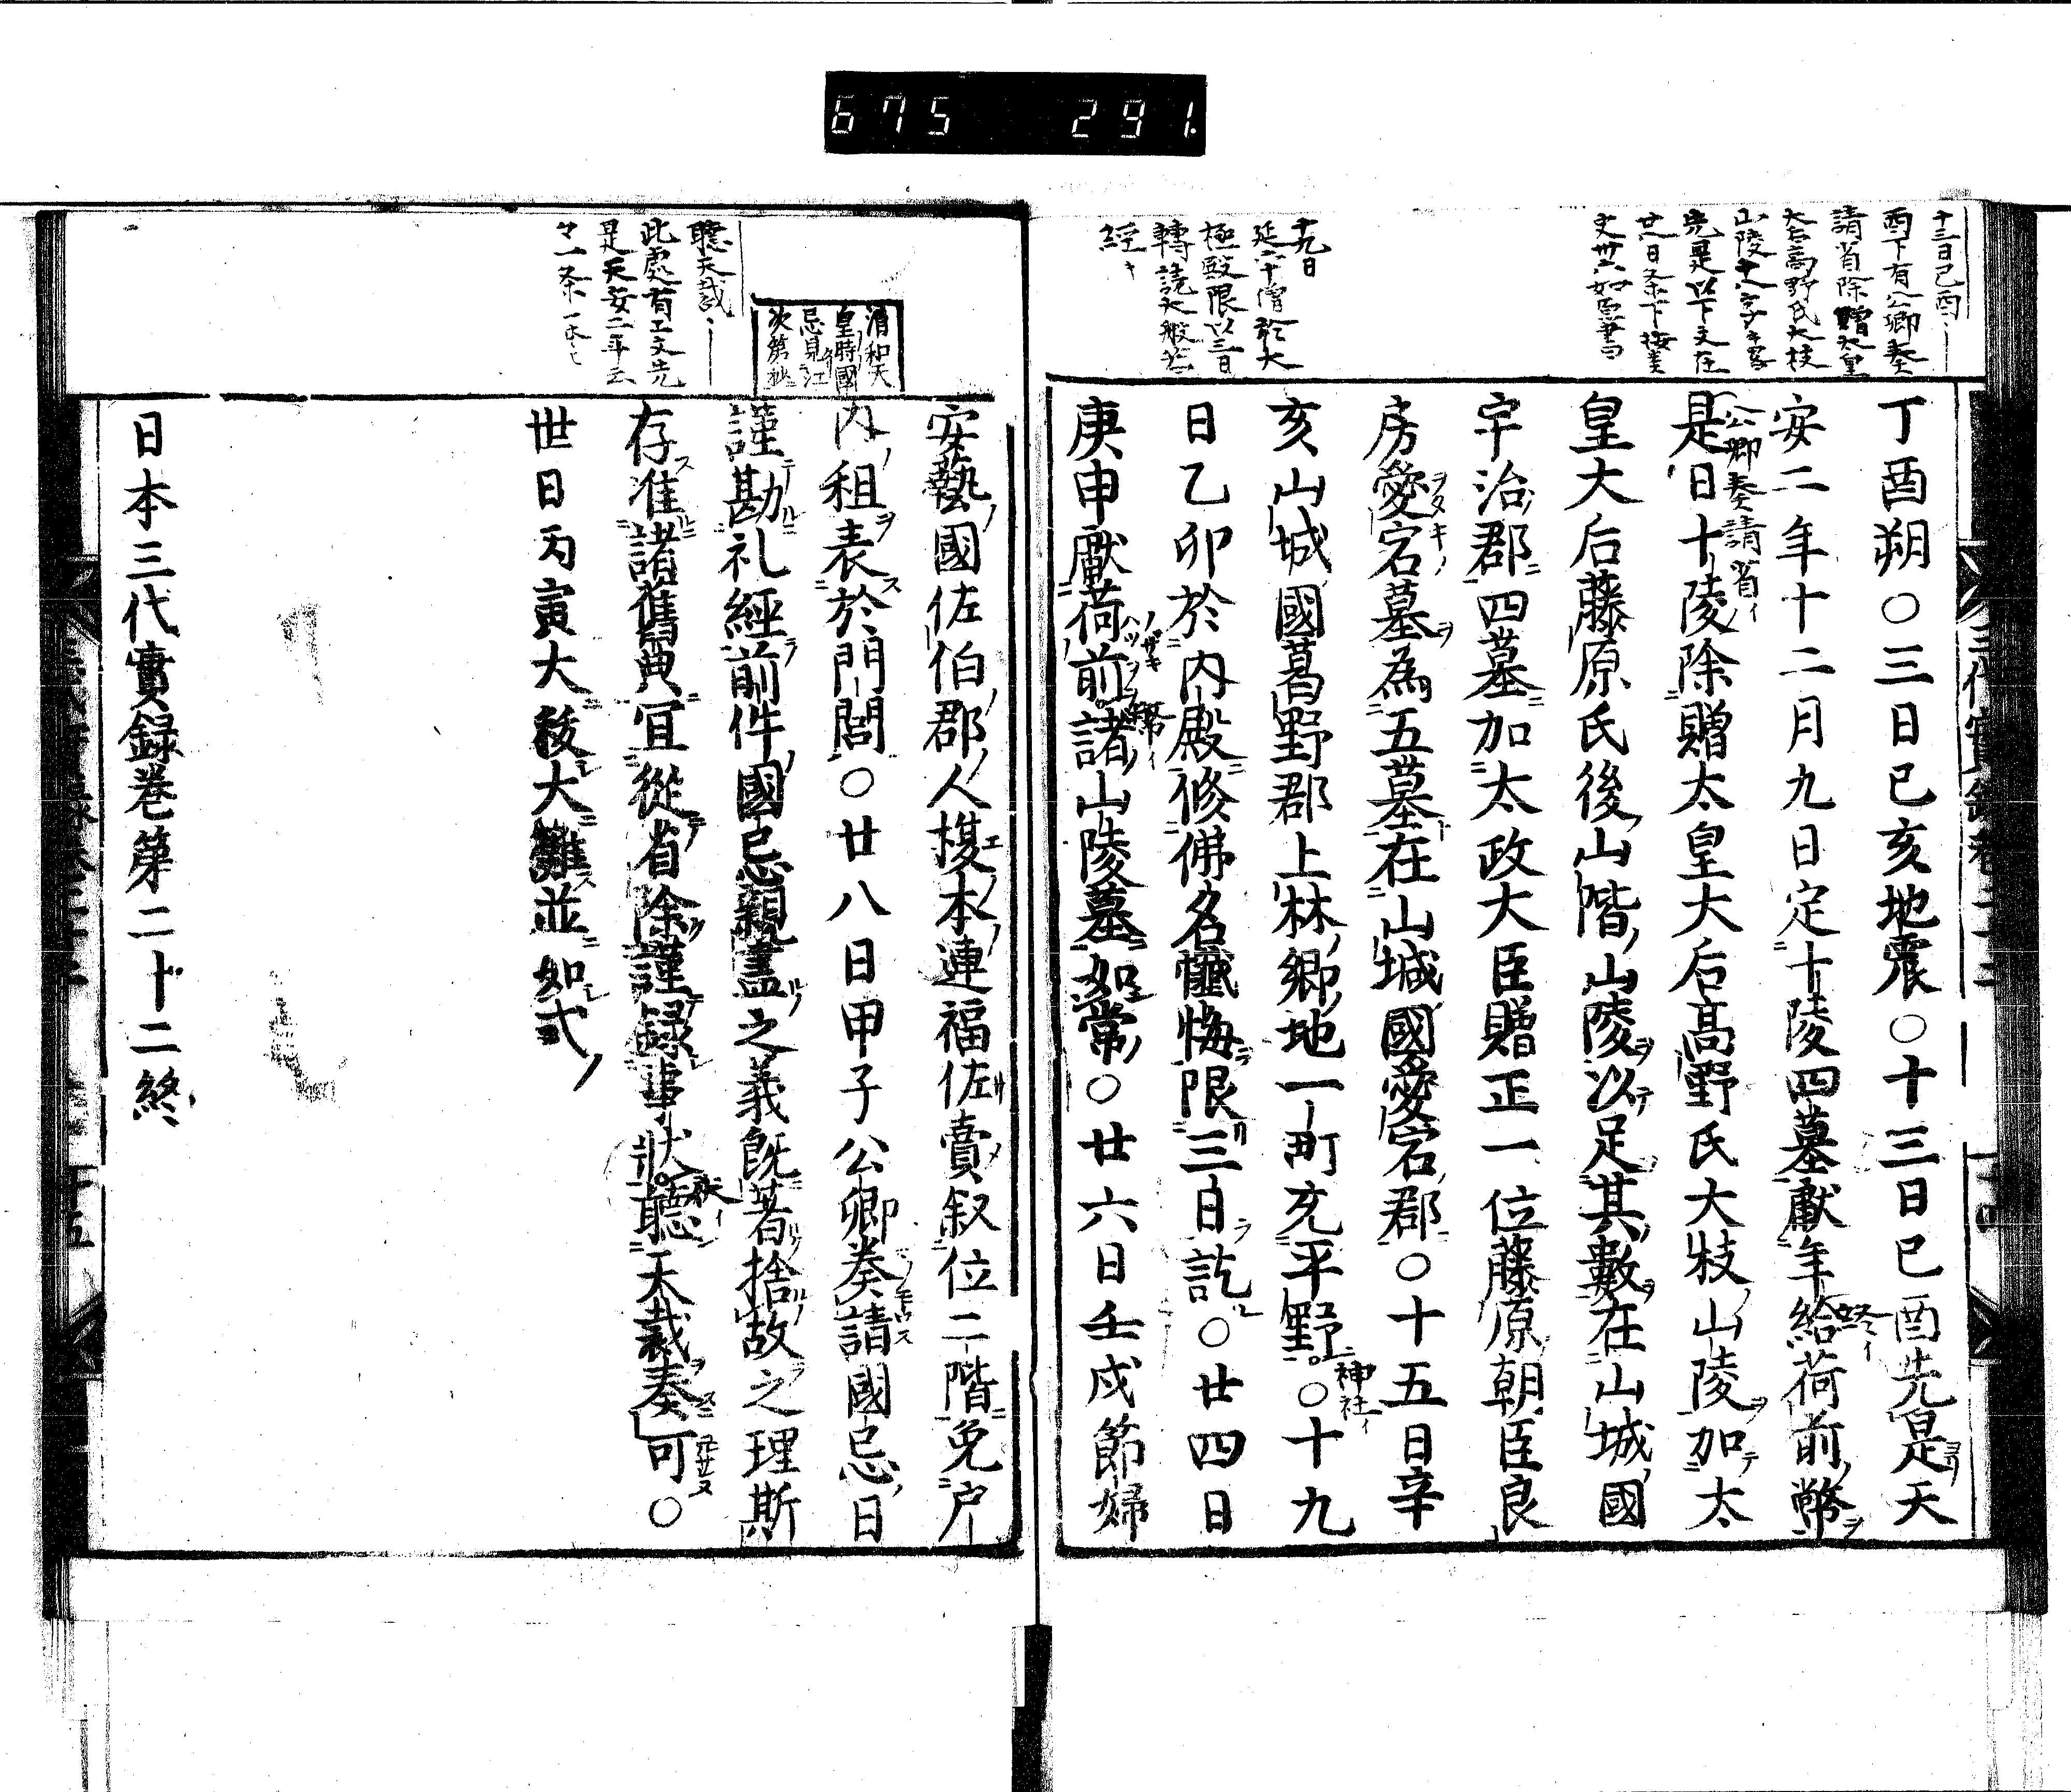 675 291
十三日己酉
酉下有公卿奏
請省除贈太皇
太后高野氏大枝
山陵十八字
先是以下文在
廿八日条下
十九日
延六十僧於大
極殿限以三日
轉読大般若
経
丁酉朔○三日己亥地震○十三日己酉先是天
安二年十二月九日定十陵四墓獻年給荷前幣
終イ
公卿奏請省イ
是日十陵除贈太皇大后髙野氏大枝山陵加太
皇大后藤原氏後山階山陵以足其數在山城國
宇治郡四墓加太政大臣贈正一位藤原朝臣良
房愛宕墓為五墓在山城國愛宕郡○十五日辛
亥山城國葛野郡上林郷地一町充平野○十九
神社イ
日乙卯於内殿修佛名懺悔限三日訖○廿四日
庚申獻荷前諸山陵墓如常○廿六日壬戌節婦
幣イ
安藝國佐伯郡人榎本連福佐賣叙位二階免户
内租表於門閭○廿八日甲子公卿奏請國忌日
謹勘礼經前件國忌親盡之義既著捨故之理斯
存准諸舊典宜從省除謹録事状聽天裁奏可○
卅日丙寅大祓大儺並如式
清和天
皇時國
忌見江
次第
聽天裁
此處有工文先
是天安二年云
々一条
日本三代實録巻第二十二終